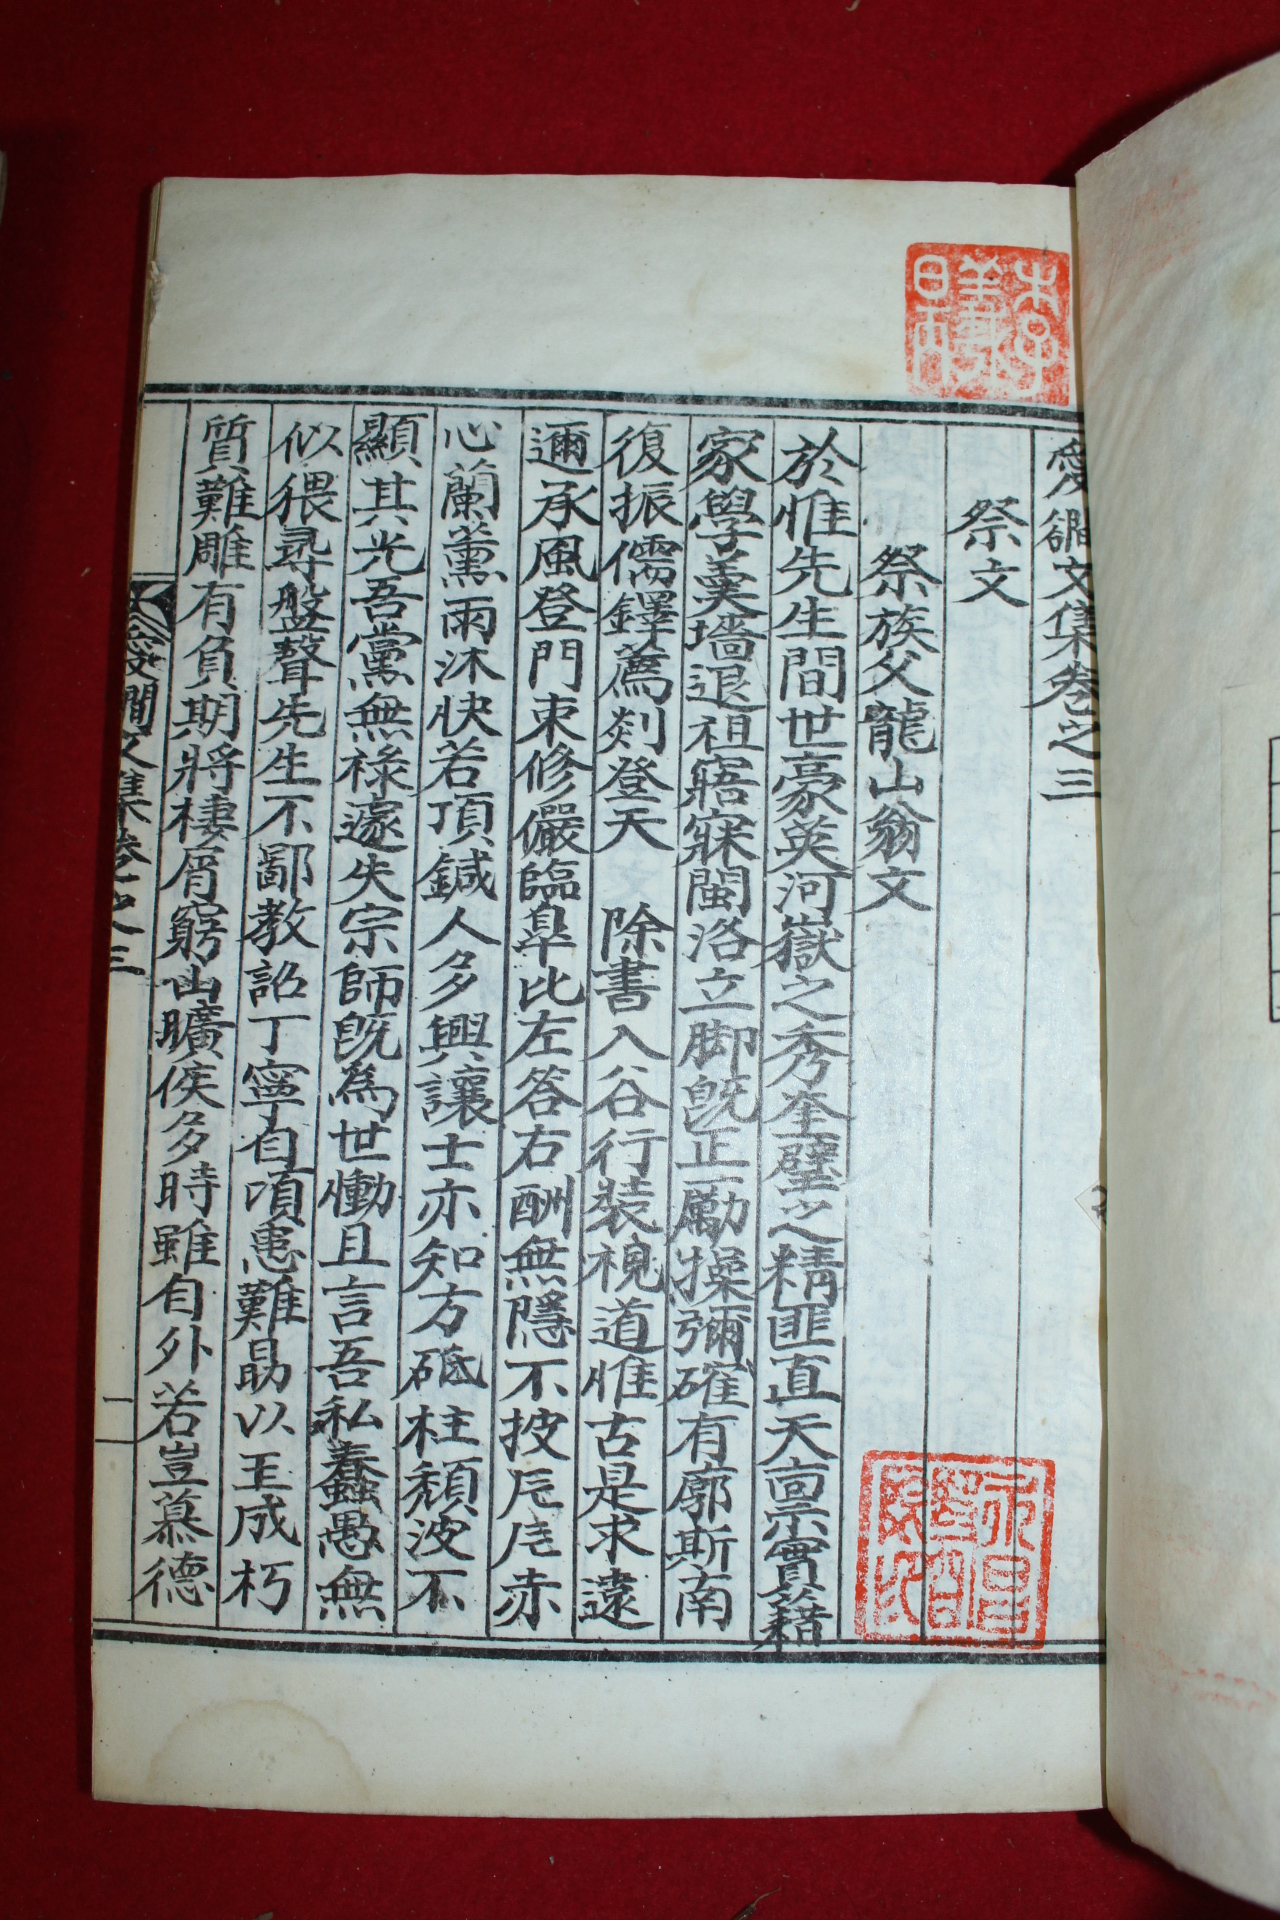 愛磵文集卷之三
祭文
祭族父龍山翁文
於惟先生間世豪英河嶽之秀奎璧之精匪直天亶示實籍
家學羹墻退祖寤寐閩洛立脚旣正勵操彌確有廓斯南
復振儒鐸薦剡登天 除書入谷行裝視道惟古是求遠
邇承風登門束修儼臨皐比左答右酬無隱不披卮卮赤
心蘭薰雨沐快若頂鍼人多興讓士亦知方砥柱頹波不
顯其光吾黨無祿遽失宗師旣爲世慟且言吾私蠢愚無
似猥尋盤聱先生不鄙敎詔丁寧自頃患難勗以玉成朽
質難雕有負期將棲屑窮山曠俟多時雖自外若豈慕德
愛磵文集卷之三
一